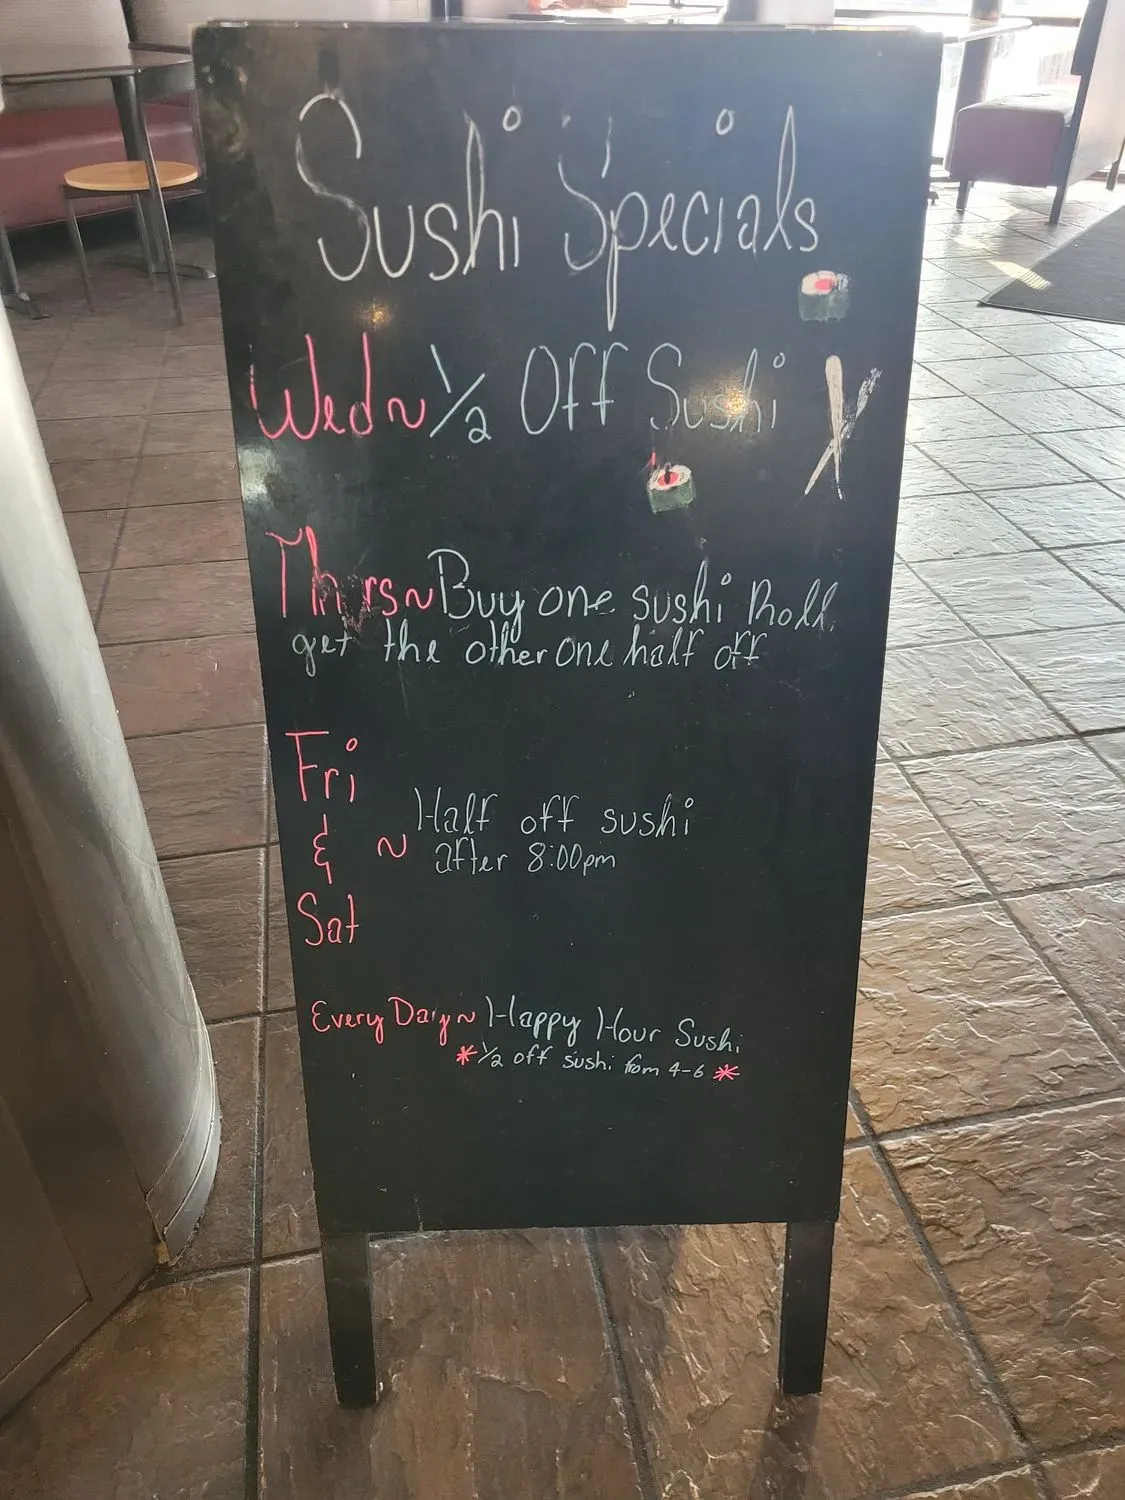 Sushi Specials
Wed~ 1/2 Off Sushi
Thurs~ Buy one sushi Roll,
get the other one half off
Fri
& ~ Half off sushi
after 8:00pm
Sat
Every Day~ Happy Hour Sushi
*1/2 off sushi from 4-6*